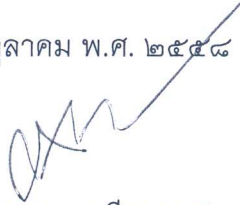 ลาคม พ.ศ. ๒๕๕๘